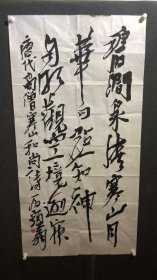 碧澗泉清寒山月
華白默知神
自明觀空境逾寂
唐代高僧寒山和尚詩